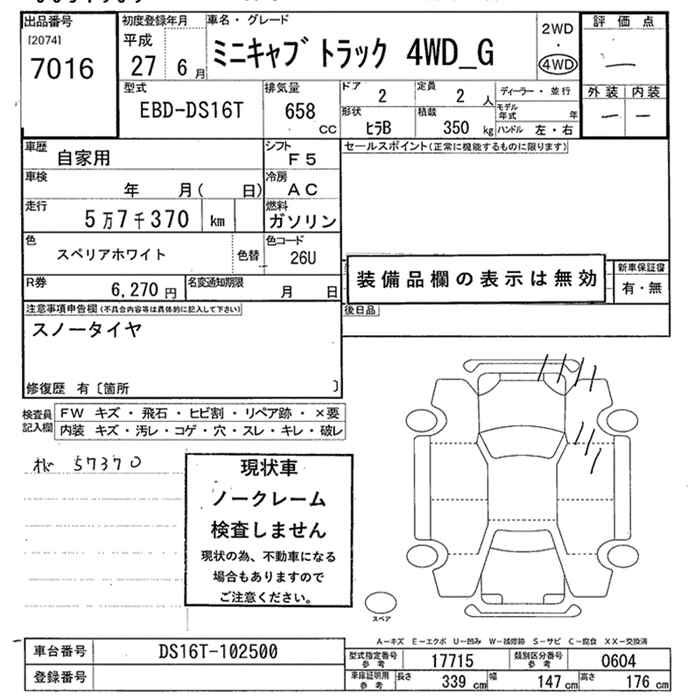 出品番号
[2074]
7016
初度登録年月
平成
27 6月
車名・グレード
ミニキャブ トラック 4WD_G
2WD
・
4WD
評価点
—
外装 内装
— —
型式
EBD-DS16T
排気量
658
CC
ドア
2
定員
2 人
ディーラー・並行
形状
ヒラB
積載
350 kg
モデル年式 年
ハンドル 左・右
車歴
自家用
シフト
F5
セールスポイント(正常に機能するものに限ります)
車検
年 月( 日)
冷房
AC
走行
5万7千370 km
燃料
ガソリン
色
スペリアホワイト
色替
色コード
26U
装備品欄の表示は無効
新車保証書
有・無
R券
6,270 円
名変通知期限
月 日
後日品
注意事項申告欄(不具合内容等は具体的に記入して下さい)
スノータイヤ
修復歴 有〔箇所 〕
検査員記入欄
FW キズ・飛石・ヒビ割・リペア跡・×要
内装 キズ・汚レ・コゲ・穴・スレ・キレ・破レ
57370
現状車
ノークレーム
検査しません
現状の為、不動車になる
場合もありますので
ご注意ください。
スペア
A－キズ E－エクボ U－凹み W－補修跡 S－サビ C－腐食 XX－交換済
車台番号
DS16T-102500
型式指定番号
参考
17715
類別区分番号
参考
0604
登録番号
車庫証明用
参考
長さ
339 cm
幅
147 cm
高さ
176 cm